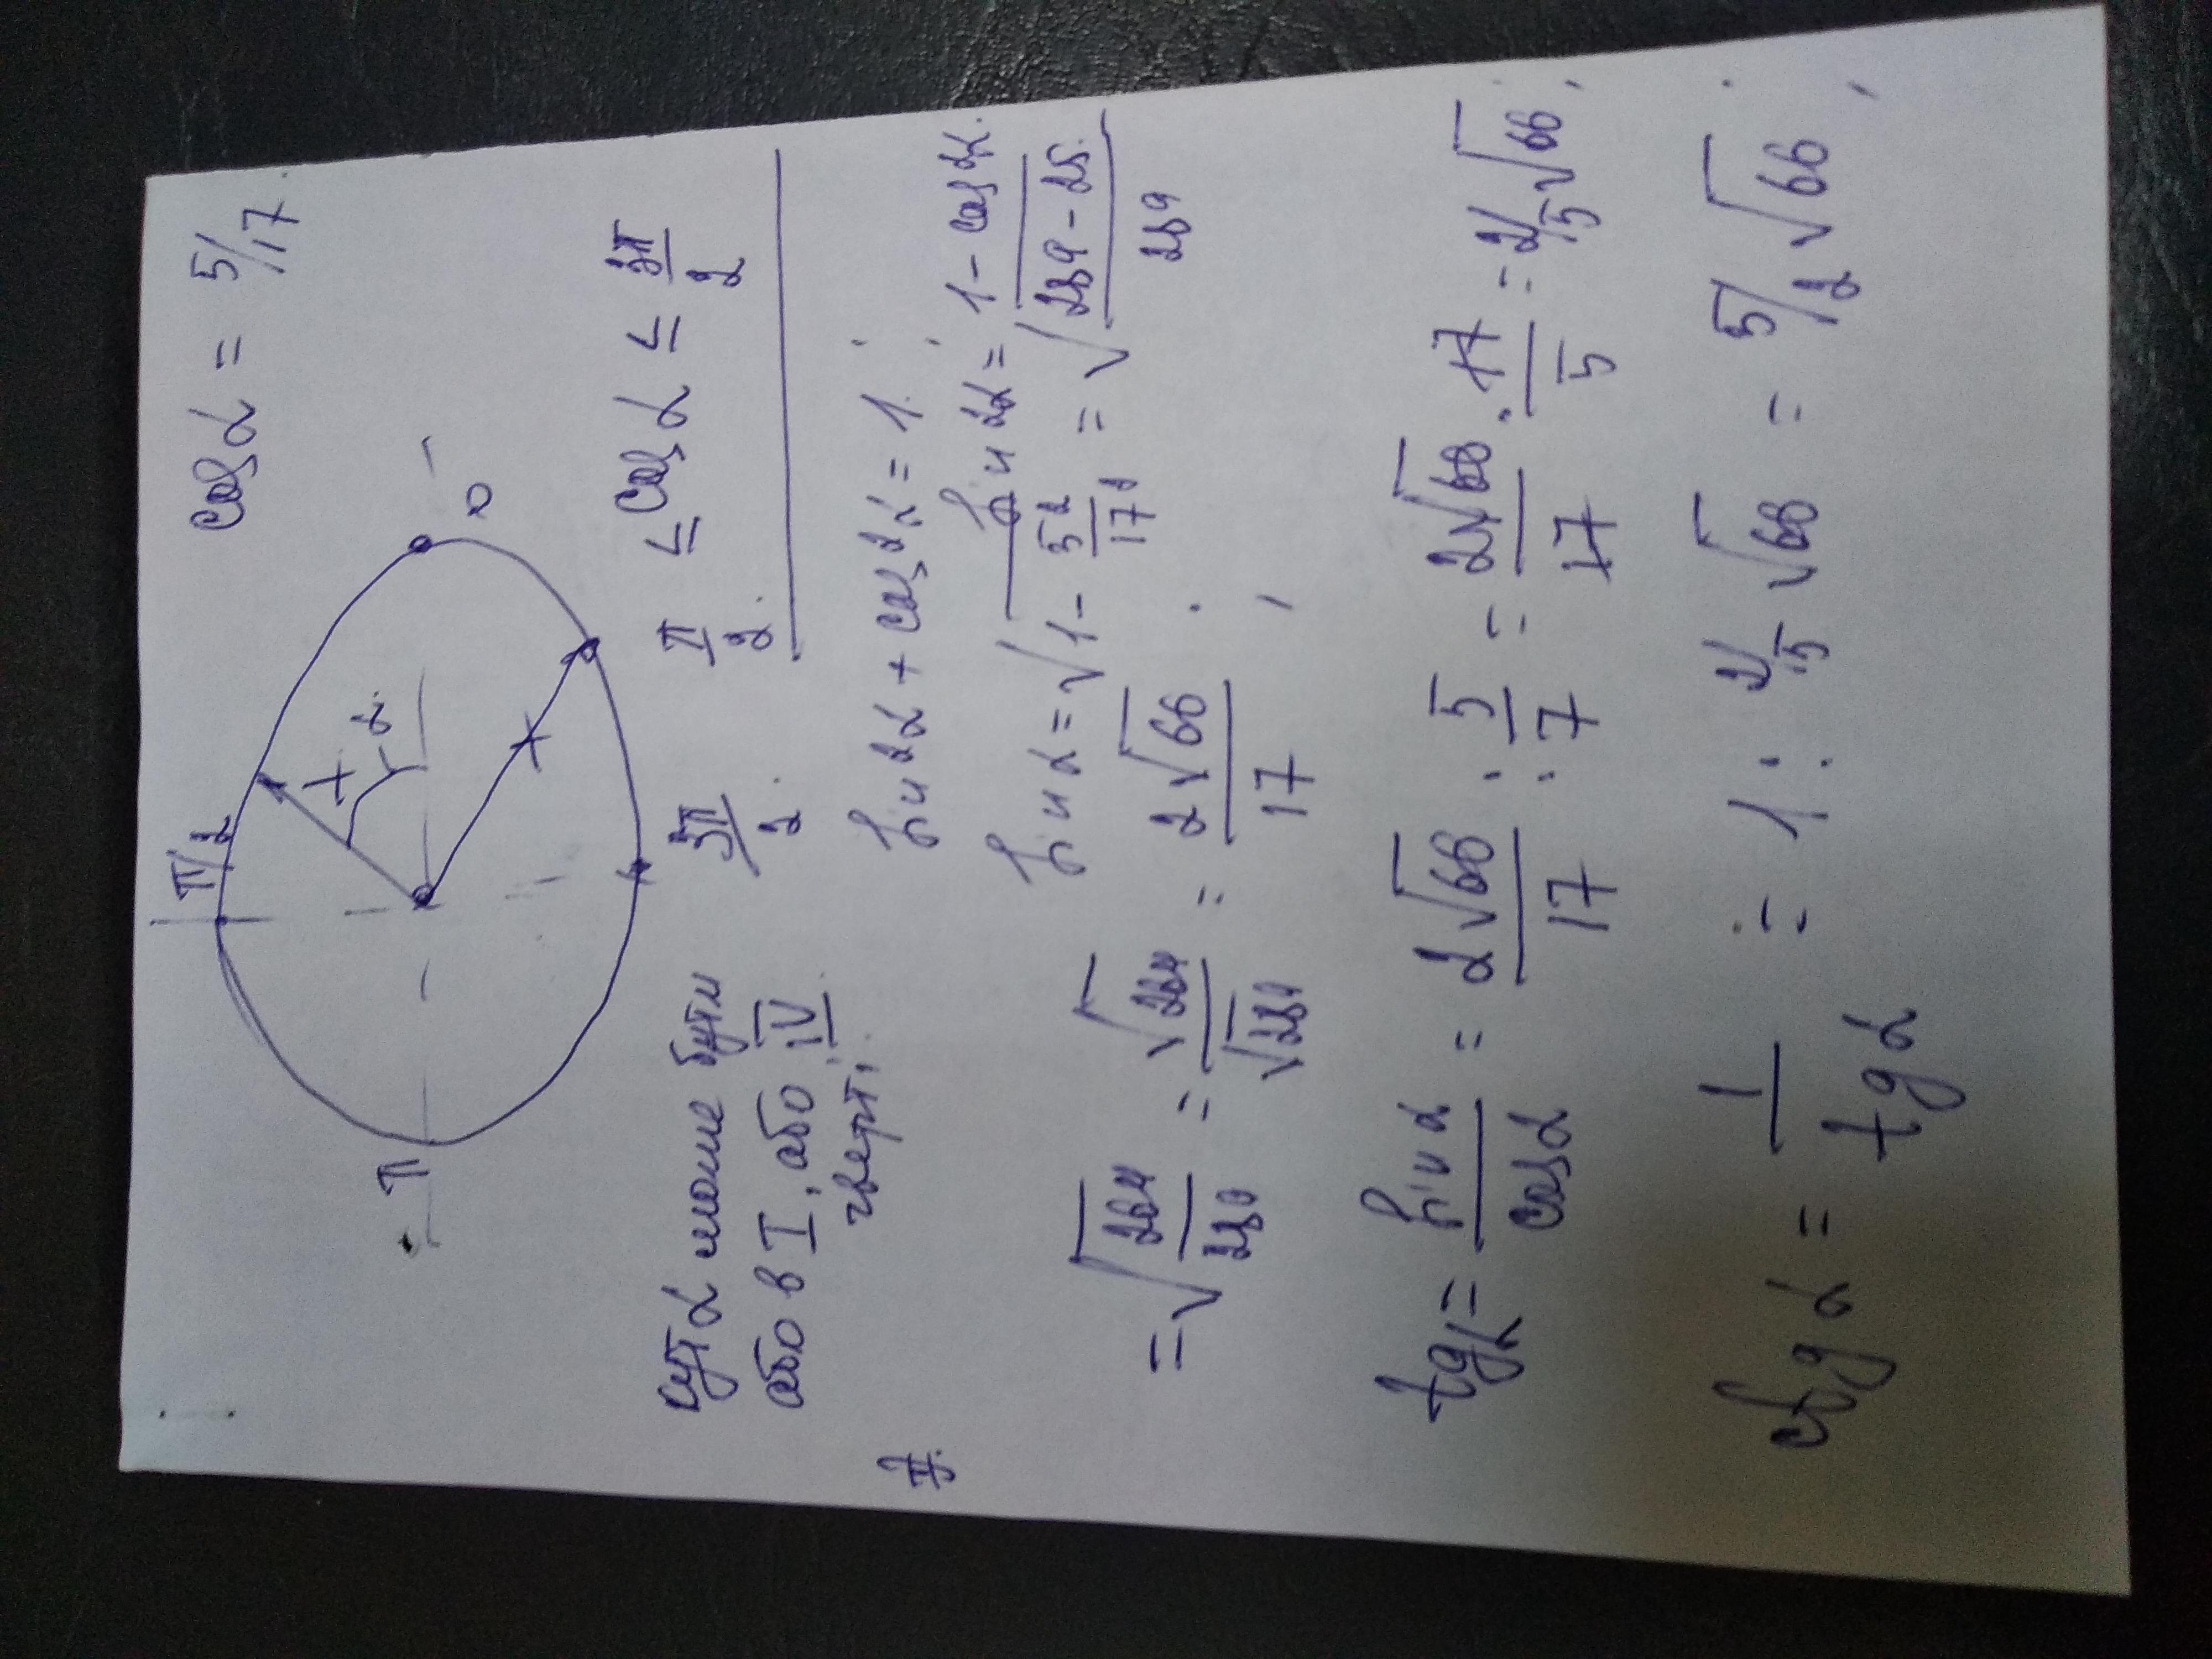 cos α = 5/17
π/2
π
0
α
3π/2
кут α може бути
або в I, або IV
чверті.
π/2 ≤ cos α ≤ 3π/2
sin²α + cos²α = 1.
sin²α = 1 - cos²α.
sin α = √(1 - 5²/17²) = √((289 - 25)/289)
= √(264/289) = √264/√289 = 2√66/17;
tg α = sin α/cos α = 2√66/17 : 5/17 = 2√66/17 · 17/5 = 2/5√66;
ctg α = 1/tg α = 1 : 2/5√66 = 5/2√66;